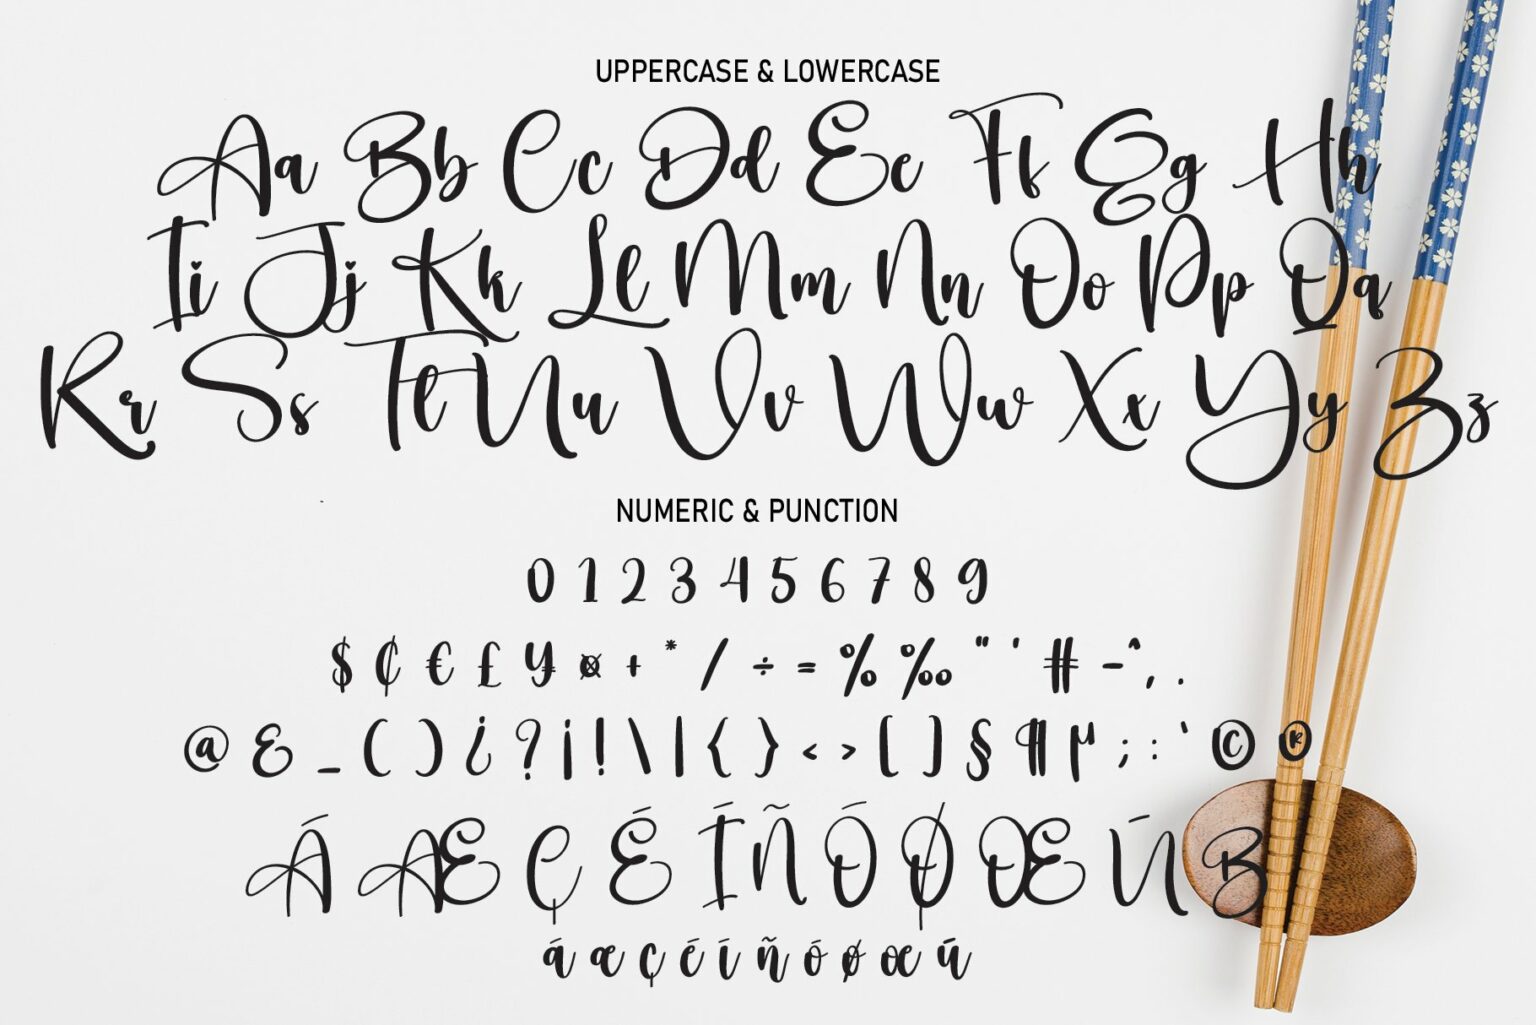 UPPERCASE & LOWERCASE
Aa Bb Cc Dd Ee Ff Gg Hh
Ii Jj Kk Ll Mm Nn Oo Pp Qq
Rr Ss Tt Uu Vv Ww Xx Yy Zz
NUMERIC & PUNCTION
0 1 2 3 4 5 6 7 8 9
$ ¢ € £ ¥ ¤ + * / ÷ = % ‰ " ' # - ^ , .
@ & _ ( ) ¿ ? ¡ ! \ | { } < > [ ] § ¶ µ ; : ` © ®
Á Æ Ç É Í Ñ Ó Ø Œ Ú B
á æ ç é í ñ ó ø œ ú